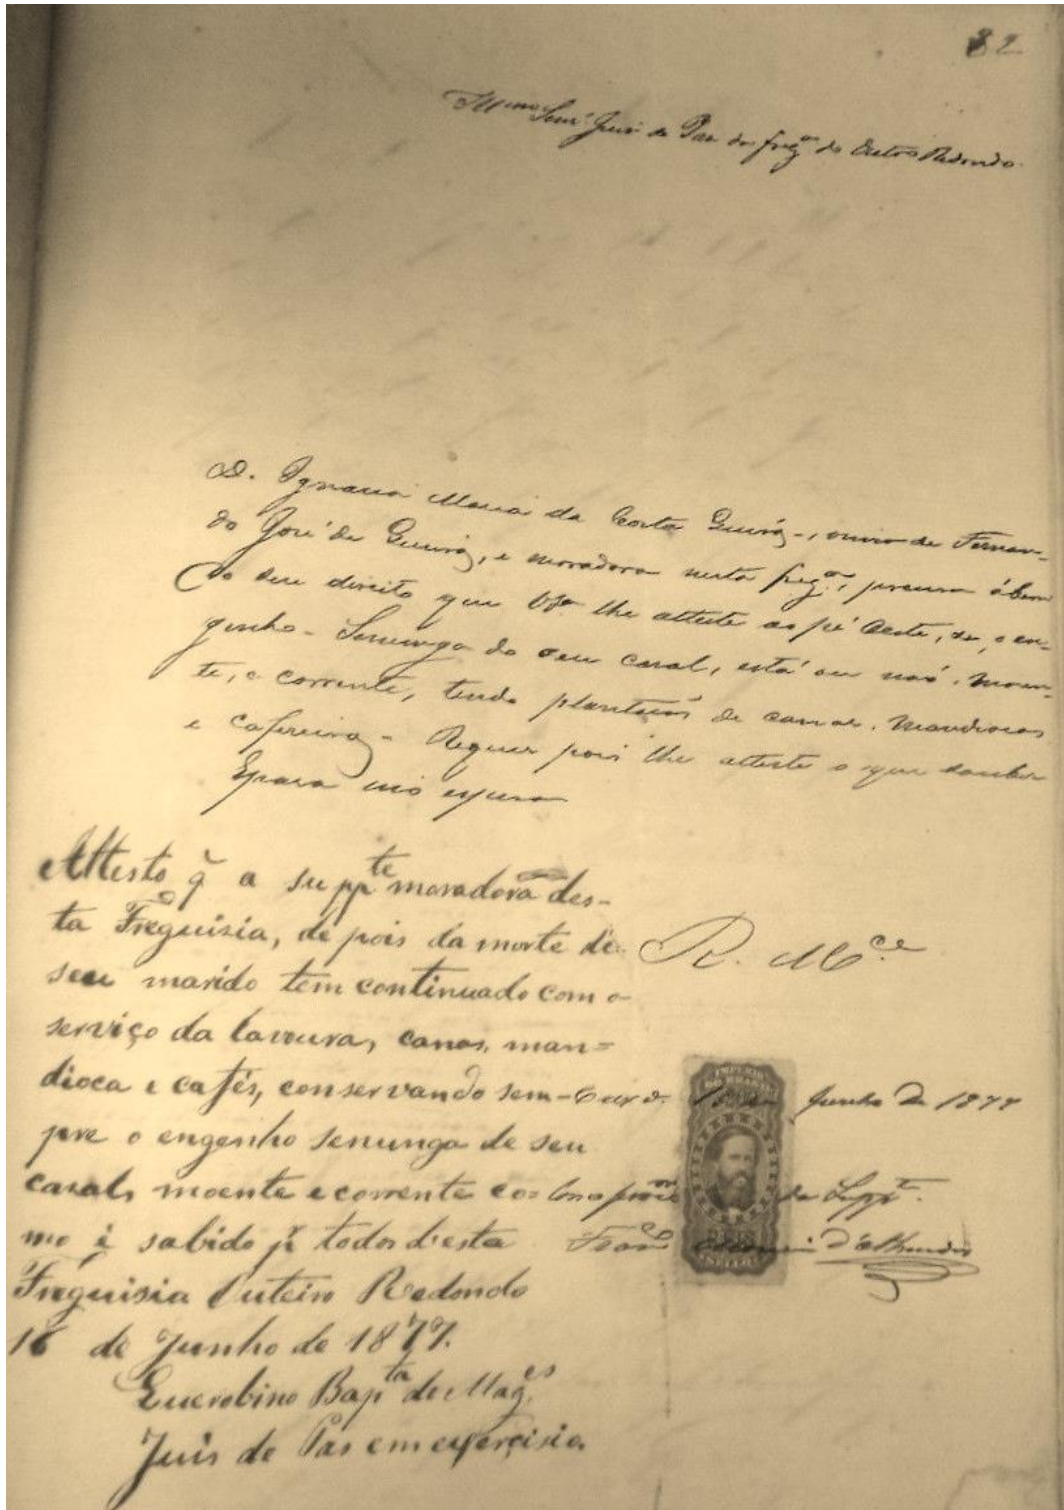 82
Illmo Senr Juis de Paz da fregª do Outro Redondo.
D. Ignacia Maria da Costa Queiróz, viuva de Fernan-
do José de Queiróz, e moradora nesta fregª, precisa á bem
do seu direito que VSª lhe atteste ao pé deste, se, o en-
genho - Senunga do seu casal, está ou naó, moen-
te, e corrente, tendo plantaçoẽs de cannas, mandiocas
e cafeeiros - Requer pois lhe atteste o que souber
Attesto q̃ a suppte moradora des-
ta Freguisia, de pois da morte de
seu marido tem continuado com o
serviço da lavoura, canas, man=
dioca e cafés, conservando sem-
pre o engenho senunga de seu
casal, moente e corrente co=
mo é sabido pr todos desta
Freguisia Outeiro Redondo
16 de Junho de 1877.
Querobino Bapta de Mages
Juis de Pas em exerçisio.
R. Mce
Junho de 1877
da Suppte
IMPERIO
DO BRASIL
SELLO